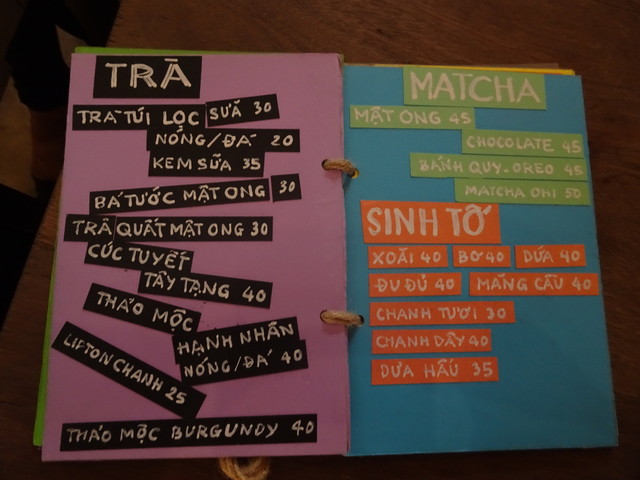 TRÀ
TRÀ TÚI LỌC SỮA 30
NÓNG/ĐÁ 20
KEM SỮA 35
BÁ TƯỚC MẬT ONG 30
TRÀ QUẤT MẬT ONG 30
CÚC TUYẾT
TÂY TẠNG 40
THẢO MỘC
HẠNH NHÂN
NÓNG/ĐÁ 40
LIPTON CHANH 25
THẢO MỘC BURGUNDY 40
MATCHA
MẬT ONG 45
CHOCOLATE 45
BÁNH QUY-OREO 45
MATCHA OHI 50
SINH TỐ
XOÀI 40 BƠ 40 DỨA 40
ĐU ĐỦ 40 MÃNG CẦU 40
CHANH TƯƠI 30
CHANH DÂY 40
DƯA HẤU 35